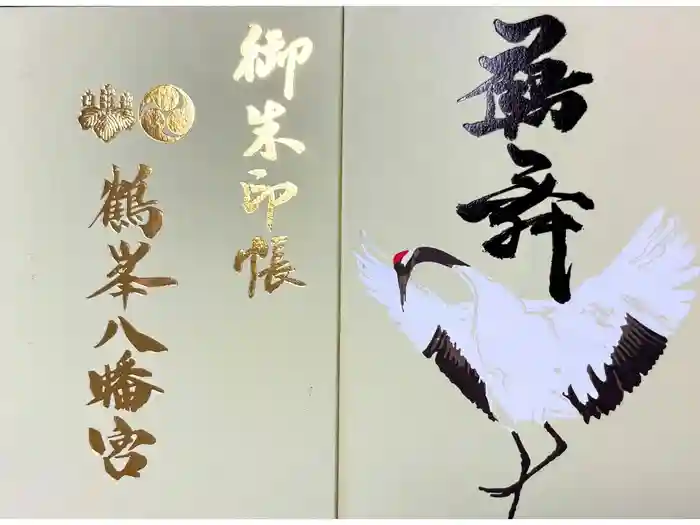 御朱印帳
鶴峯八幡宮